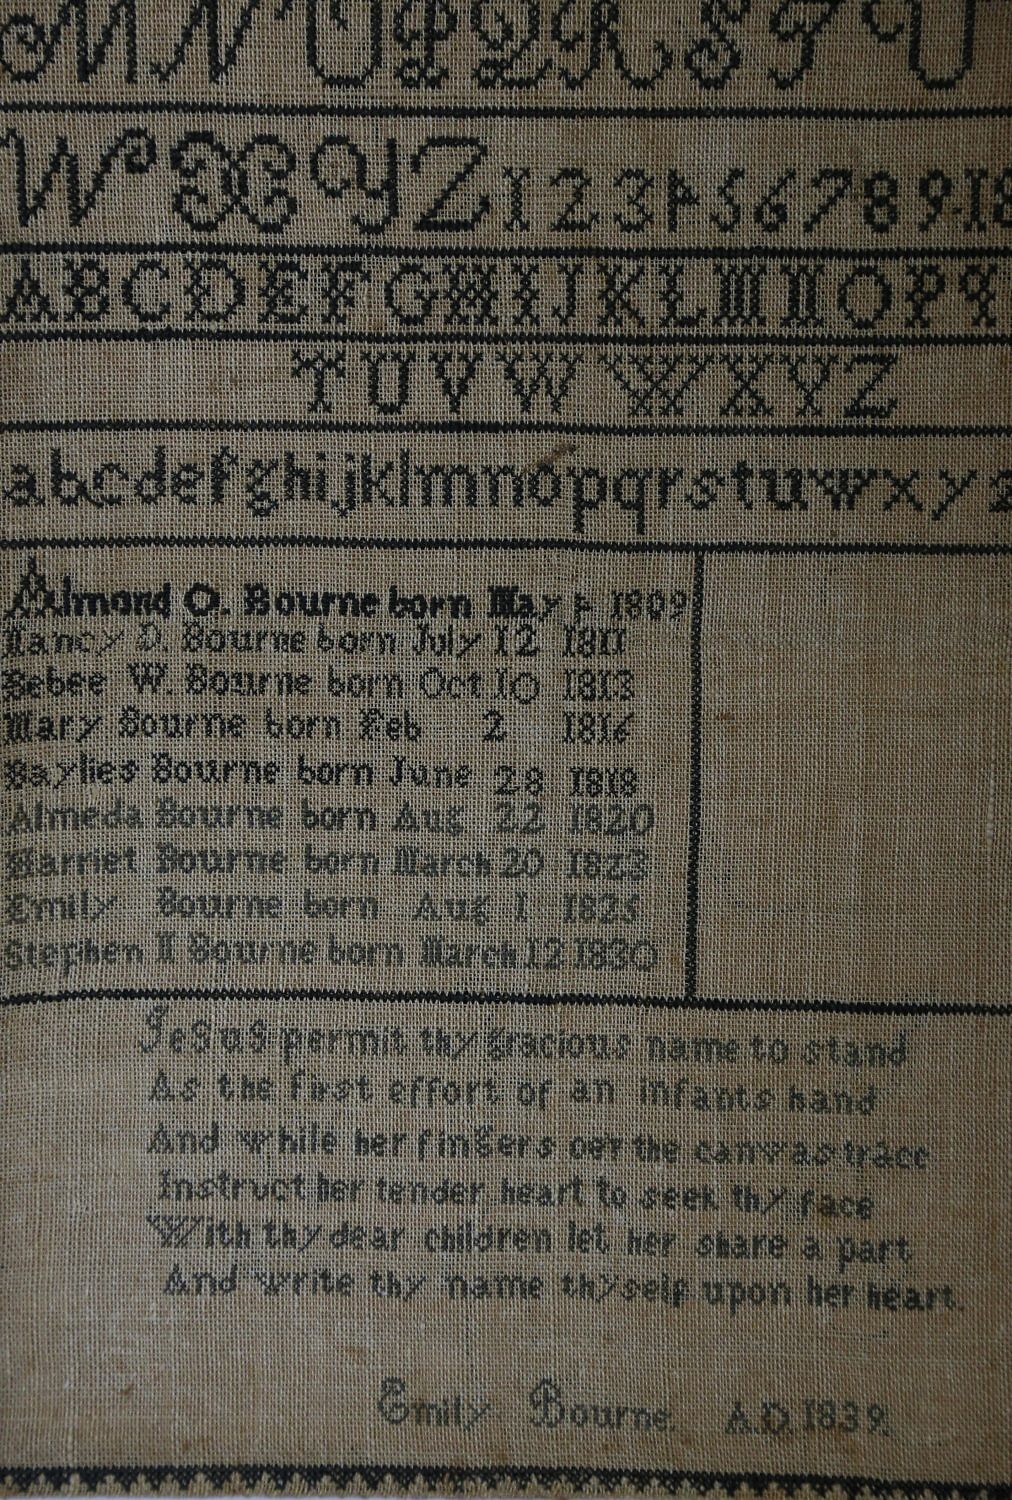 M N O P Q R S T U
W X Y Z 1 2 3 4 5 6 7 8 9 18
A B C D E F G H I J K L M N O P Q
T U V W W X Y Z
a b c d e f g h i j k l m n o p q r s t u w x y z
Almond O. Bourne born May 4 1809
Nancy D. Bourne born July 12 1811
Bebee W. Bourne born Oct 10 1813
Mary Bourne born Feb 2 1816
Baylies Bourne born June 28 1818
Almeda Bourne born Aug 22 1820
Harriet Bourne born March 20 1823
Emily Bourne born Aug 1 1825
Stephen H Bourne born March 12 1830
Jesus permit thy gracious name to stand
As the first effort of an infants hand
And while her fingers oer the canvas trace
Instruct her tender heart to seek thy face
With thy dear children let her share a part
And write thy name thyself upon her heart.
Emily Bourne. A.D. 1839.